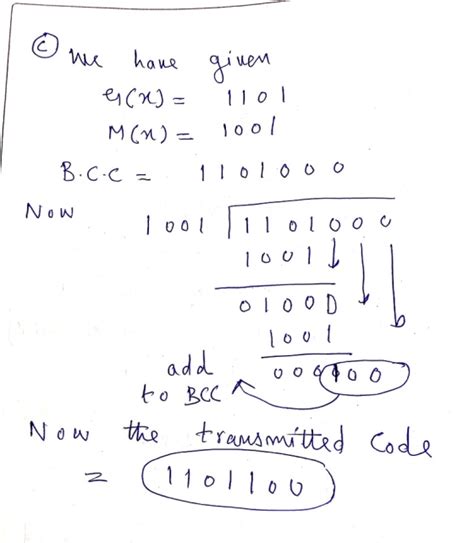 (c) We have given
G(x) = 1101
M(x) = 1001
B.C.C = 1101000
Now 1001 | 1101000
1001
01000
1001
000100
add
to BCC
Now the transmitted code
= 1101100